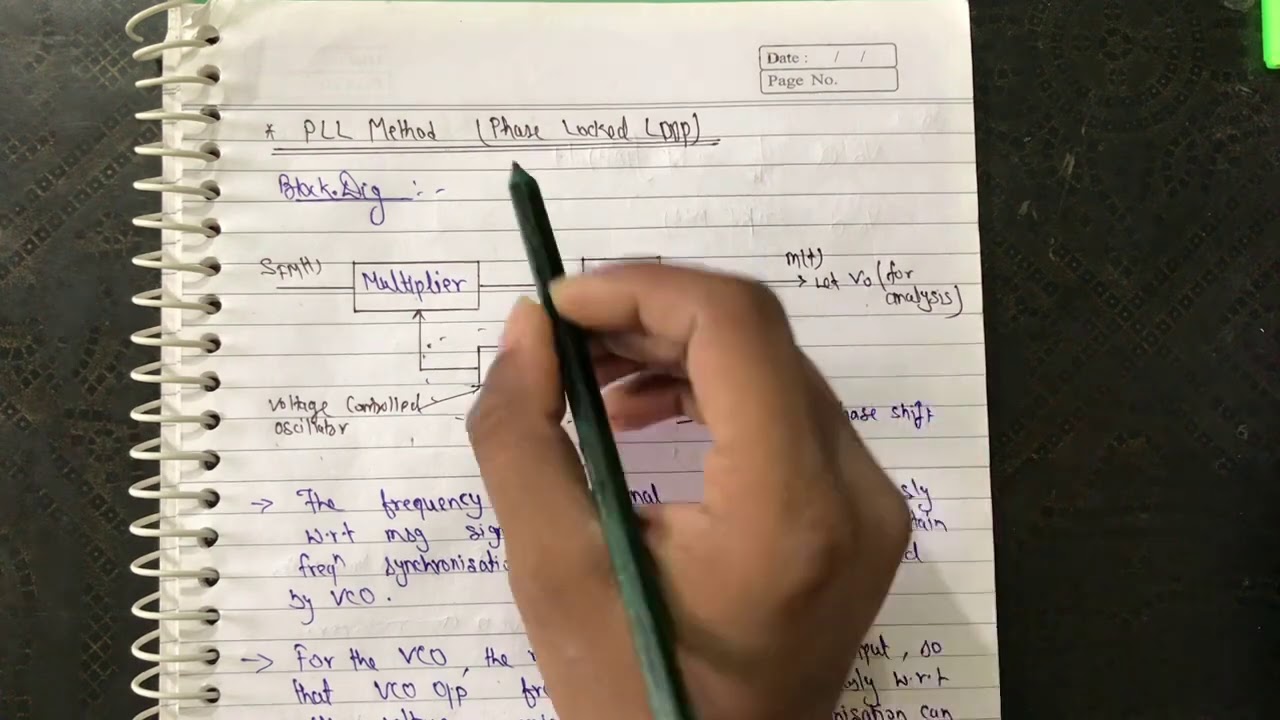 Date : / /
Page No.
* PLL Method (Phase Locked Loop)
Block.Dig :-
SFM(t)
Multiplier
m(t)
Let Vo (for analysis)
Voltage Controlled
oscillator
hase shift
→ The frequency nal sly
w.r.t msg sig ain
freqn synchronisatio d
by VCO.
→ For the VCO, the put, so
that VCO O/p fre sly w.r.t
nisation can